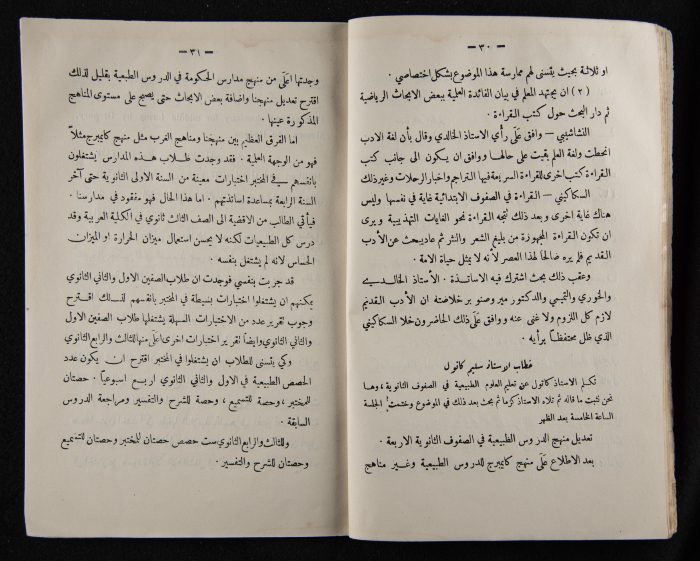 — ٣٠ —
او ثلاثة بحيث يتسنى لهم ممارسة هذا الموضوع بشكل اختصاصي .
( ٢ ) ان يجتهد المعلم في بيان الفائدة العملية لبعض الابحاث الرياضية
ثم دار البحث حول كتب القراءة .
النشاشيبي — وافق على رأي الاستاذ الخالدي وقال بأن لغة الادب
انحطت ولغة العلم بقيت على حالها ووافق ان يكون الى جانب كتب
القراءة كتب اخرى للقراءة السريعة فيها التراجم واخبار الرحلات وغير ذلك
السكاكيني — القراءة في الصفوف الابتدائية غاية في نفسها وليس
هناك غاية اخرى وبعد ذلك تتجه القراءة نحو الغايات التهذيبية ويرى
ان تكون القراءة المجهوزة من بليغ الشعر والنثر ثم عاد يبحث عن الأدب
القديم فلم يره صالحاً لهذا العصر لأنه لا يمثل حياة الامة .
وعقب ذلك بحث اشترك فيه الاساتذة . الأستاذ الخالدي
والخوري والتميمي والدكتور مير وصنوبر خلاصته ان الأدب القديم
لازم كل اللزوم ولا غنى عنه ووافق على ذلك الحاضرون خلا السكاكيني
الذي ظل محتفظاً برأيه .
خطاب الاستاذ سليم كاتول
تكلم الاستاذ كاتول عن تعليم العلوم الطبيعية في الصفوف الثانوية ، وها
نحن نثبت ما قاله ثم تلاه الاستاذ كرما ثم بحث بعد ذلك في الموضوع وختمت الجلسة
الساعة الخامسة بعد الظهر
تعديل منهج الدروس الطبيعية في الصفوف الثانوية الاربعة .
بعد الاطلاع على منهج كايمبرج للدروس الطبيعية وغير مناهج
— ٣١ —
وجدتها اعلى من منهج مدارس الحكومة في الدروس الطبعية بقليل لذلك
اقترح تعديل منهجنا واضافة بعض الابحاث حتى يصبح على مستوى المناهج
المذكورة عينها .
اما الفرق العظيم بين منهجنا ومناهج الغرب مثل منهج كايمبرج مثلاً
فهو من الوجهة العملية . فقد وجدت طلاب هذه المدارس يشتغلون
بانفسهم في المختبر اختبارات معينة من السنة الاولى الثانوية حتى آخر
السنة الرابعة بمساعدة اساتذتهم . اما هذا الحال فهو مفقود في مدارسنا .
فيأتي الطالب من الاقضية الى الصف الثالث ثانوي في الكلية العربية وقد
درس كل الطبيعيات لكنه لا يحسن استعمال ميزان الحرارة او الميزان
الحساس لانه لم يشتغل بنفسه .
قد جربت بنفسي فوجدت ان طلاب الصفين الاول والثاني الثانوي
يمكنهم ان يشتغلوا اختبارات بسيطة في المختبر بانفسهم لذلك اقترح
وجوب تقرير عدد من الاختبارات السهلة يشتغلها طلاب الصفين الاول
والثاني الثانوي وايضاً تقرير اختبارات اخرى اعلى منها للثالث والرابع الثانوي
وكي يتسنى للطلاب ان يشتغلوا في المختبر اقترح ان يكون عدد
الحصص الطبيعية في الاول والثاني الثانوي اربع اسبوعياً . حصتان
للمختبر ، وحصة للتسميع ، وحصة للشرح والتفسير ومراجعة الدروس
السابقة .
وللثالث والرابع الثانوي ست حصص حصتان للمختبر وحصتان للتسميع
وحصتان للشرح والتفسير .